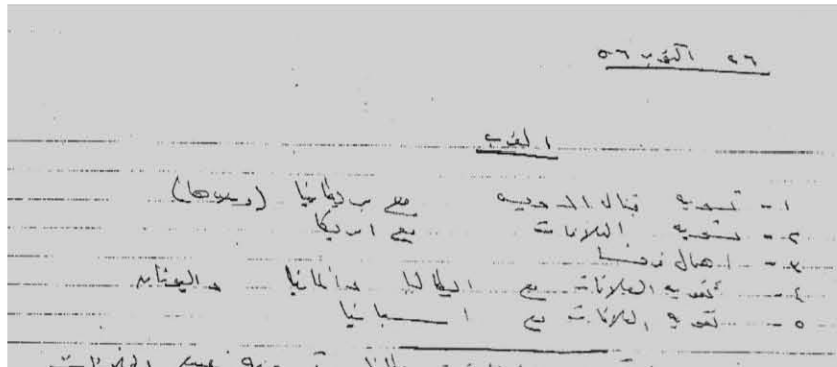 ٢٦ اكتوبر ٥٦
الغرب
١ - تسويه قنال السويس مع بريطانيا (وحدها)
٢ - تسويه العلاقات مع امريكا
٣ - اهمال فرنسا
٤ - تقويه العلاقات مع ايطاليا والمانيا واليونان
٥ - تقويه العلاقات مع اسبانيا